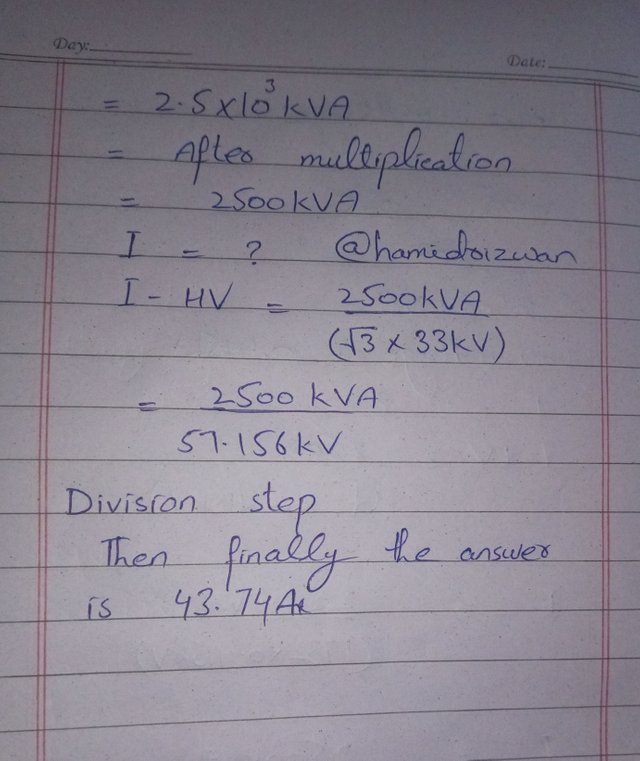 Day:
Date:
= 2.5x10³ kVA
= After multiplication
= 2500kVA
I = ? @hamidrizwan
I - HV = 2500kVA
(√3 x 33kV)
= 2500 kVA
57.156kV
Division step
Then finally the answer
is 43.74A